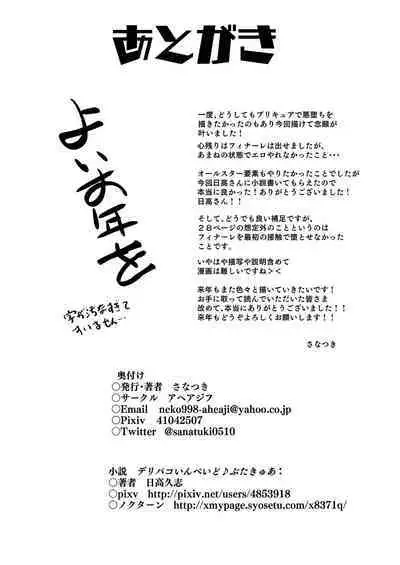 あとがき
よいお年を
字が汚なすぎて
すいません…
一度、どうしてもプリキュアで悪堕ちを
描きたかったのもあり今回描けて念願が
叶いました！
心残りはフィナーレは出せましたが、
あまねの状態でエロやれなかったこと・・・
オールスター要素もやりたかったことでしたが
今回日高さんに小説書いてもらえたので
本当に良かった！ありがとうございました！
日高さん！！
そして、どうでも良い補足ですが、
２８ページの想定外のことというのは
フィナーレを最初の接触で堕とせなかった
ことです。
いやはや描写や説明含めて
漫画は難しいですね＞＜
来年もまた色々と描いていきたいです！
お手に取って読んでいただいた皆さま
改めて、本当にありがとうございました！！
来年もどうぞよろしくお願いします！！
さなつき
奥付け
〇発行・著者　さなつき
〇サークル　アヘアジフ
〇Email　neko998-aheaji@yahoo.co.jp
〇Pixiv　41042507
〇Twitter　@sanatuki0510
小説　デリバコいんべいど♪ぶたきゅあ：
〇著者　日高久志
〇pixv　http://pixiv.net/users/4853918
〇ノクターン　http://xmypage.syosetu.com/x8371q/